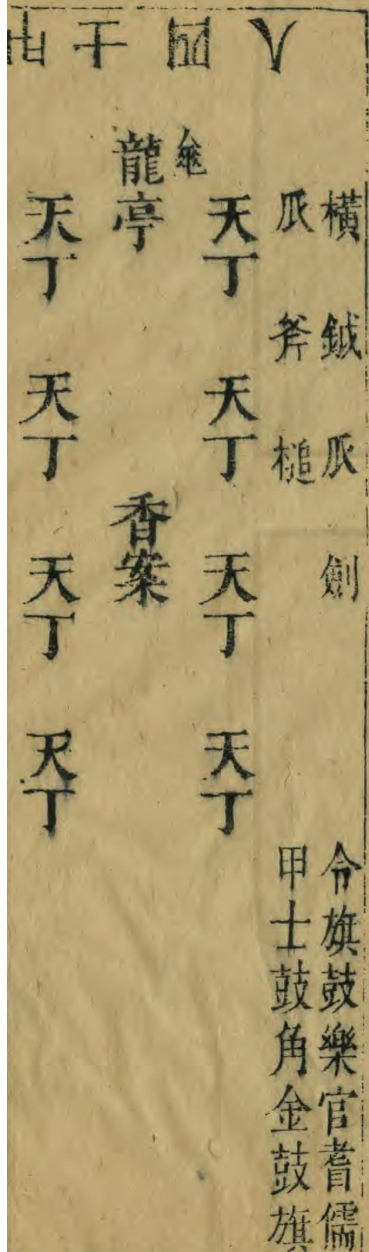 橫鉞瓜劍令旗鼓樂官耆儒
瓜斧槌甲士鼓角金鼓旗
天丁天丁天丁天丁
龍亭香案
天丁天丁天丁天丁